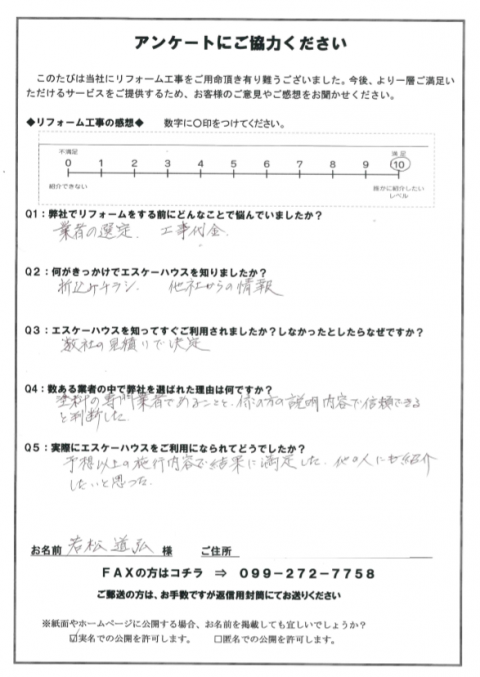 アンケートにご協力ください
このたびは当社にリフォーム工事をご用命頂き有り難うございました。今後、より一層ご満足い
ただけるサービスをご提供するため、お客様のご意見やご感想をお聞かせください。
◆リフォーム工事の感想◆ 数字に〇印をつけてください。
不満足 満足
0 1 2 3 4 5 6 7 8 9 10
紹介できない 誰かに紹介したい
レベル
Q1：弊社でリフォームをする前にどんなことで悩んでいましたか？
業者の選定、 工事代金
Q2：何がきっかけでエスケーハウスを知りましたか？
折込チラシ、 他社からの情報
Q3：エスケーハウスを知ってすぐご利用されましたか？しなかったとしたらなぜですか？
数社の見積りで決定
Q4：数ある業者の中で弊社を選ばれた理由は何ですか？
塗料の専門業者であることと、 の方の説明内容で信頼できる
と判断した
Q5：実際にエスケーハウスをご利用になられてどうでしたか？
予想以上の施行内容で結果に満足した。他の人にも紹介
したいと思った
お名前 若松 道弘 様 ご住所
FAXの方はコチラ ⇒ 099-272-7758
ご郵送の方は、お手数ですが返信用封筒にてお送りください
※紙面やホームページに公開する場合、お名前を掲載しても宜しいでしょうか？
☑実名での公開を許可します。 □匿名での公開を許可します。